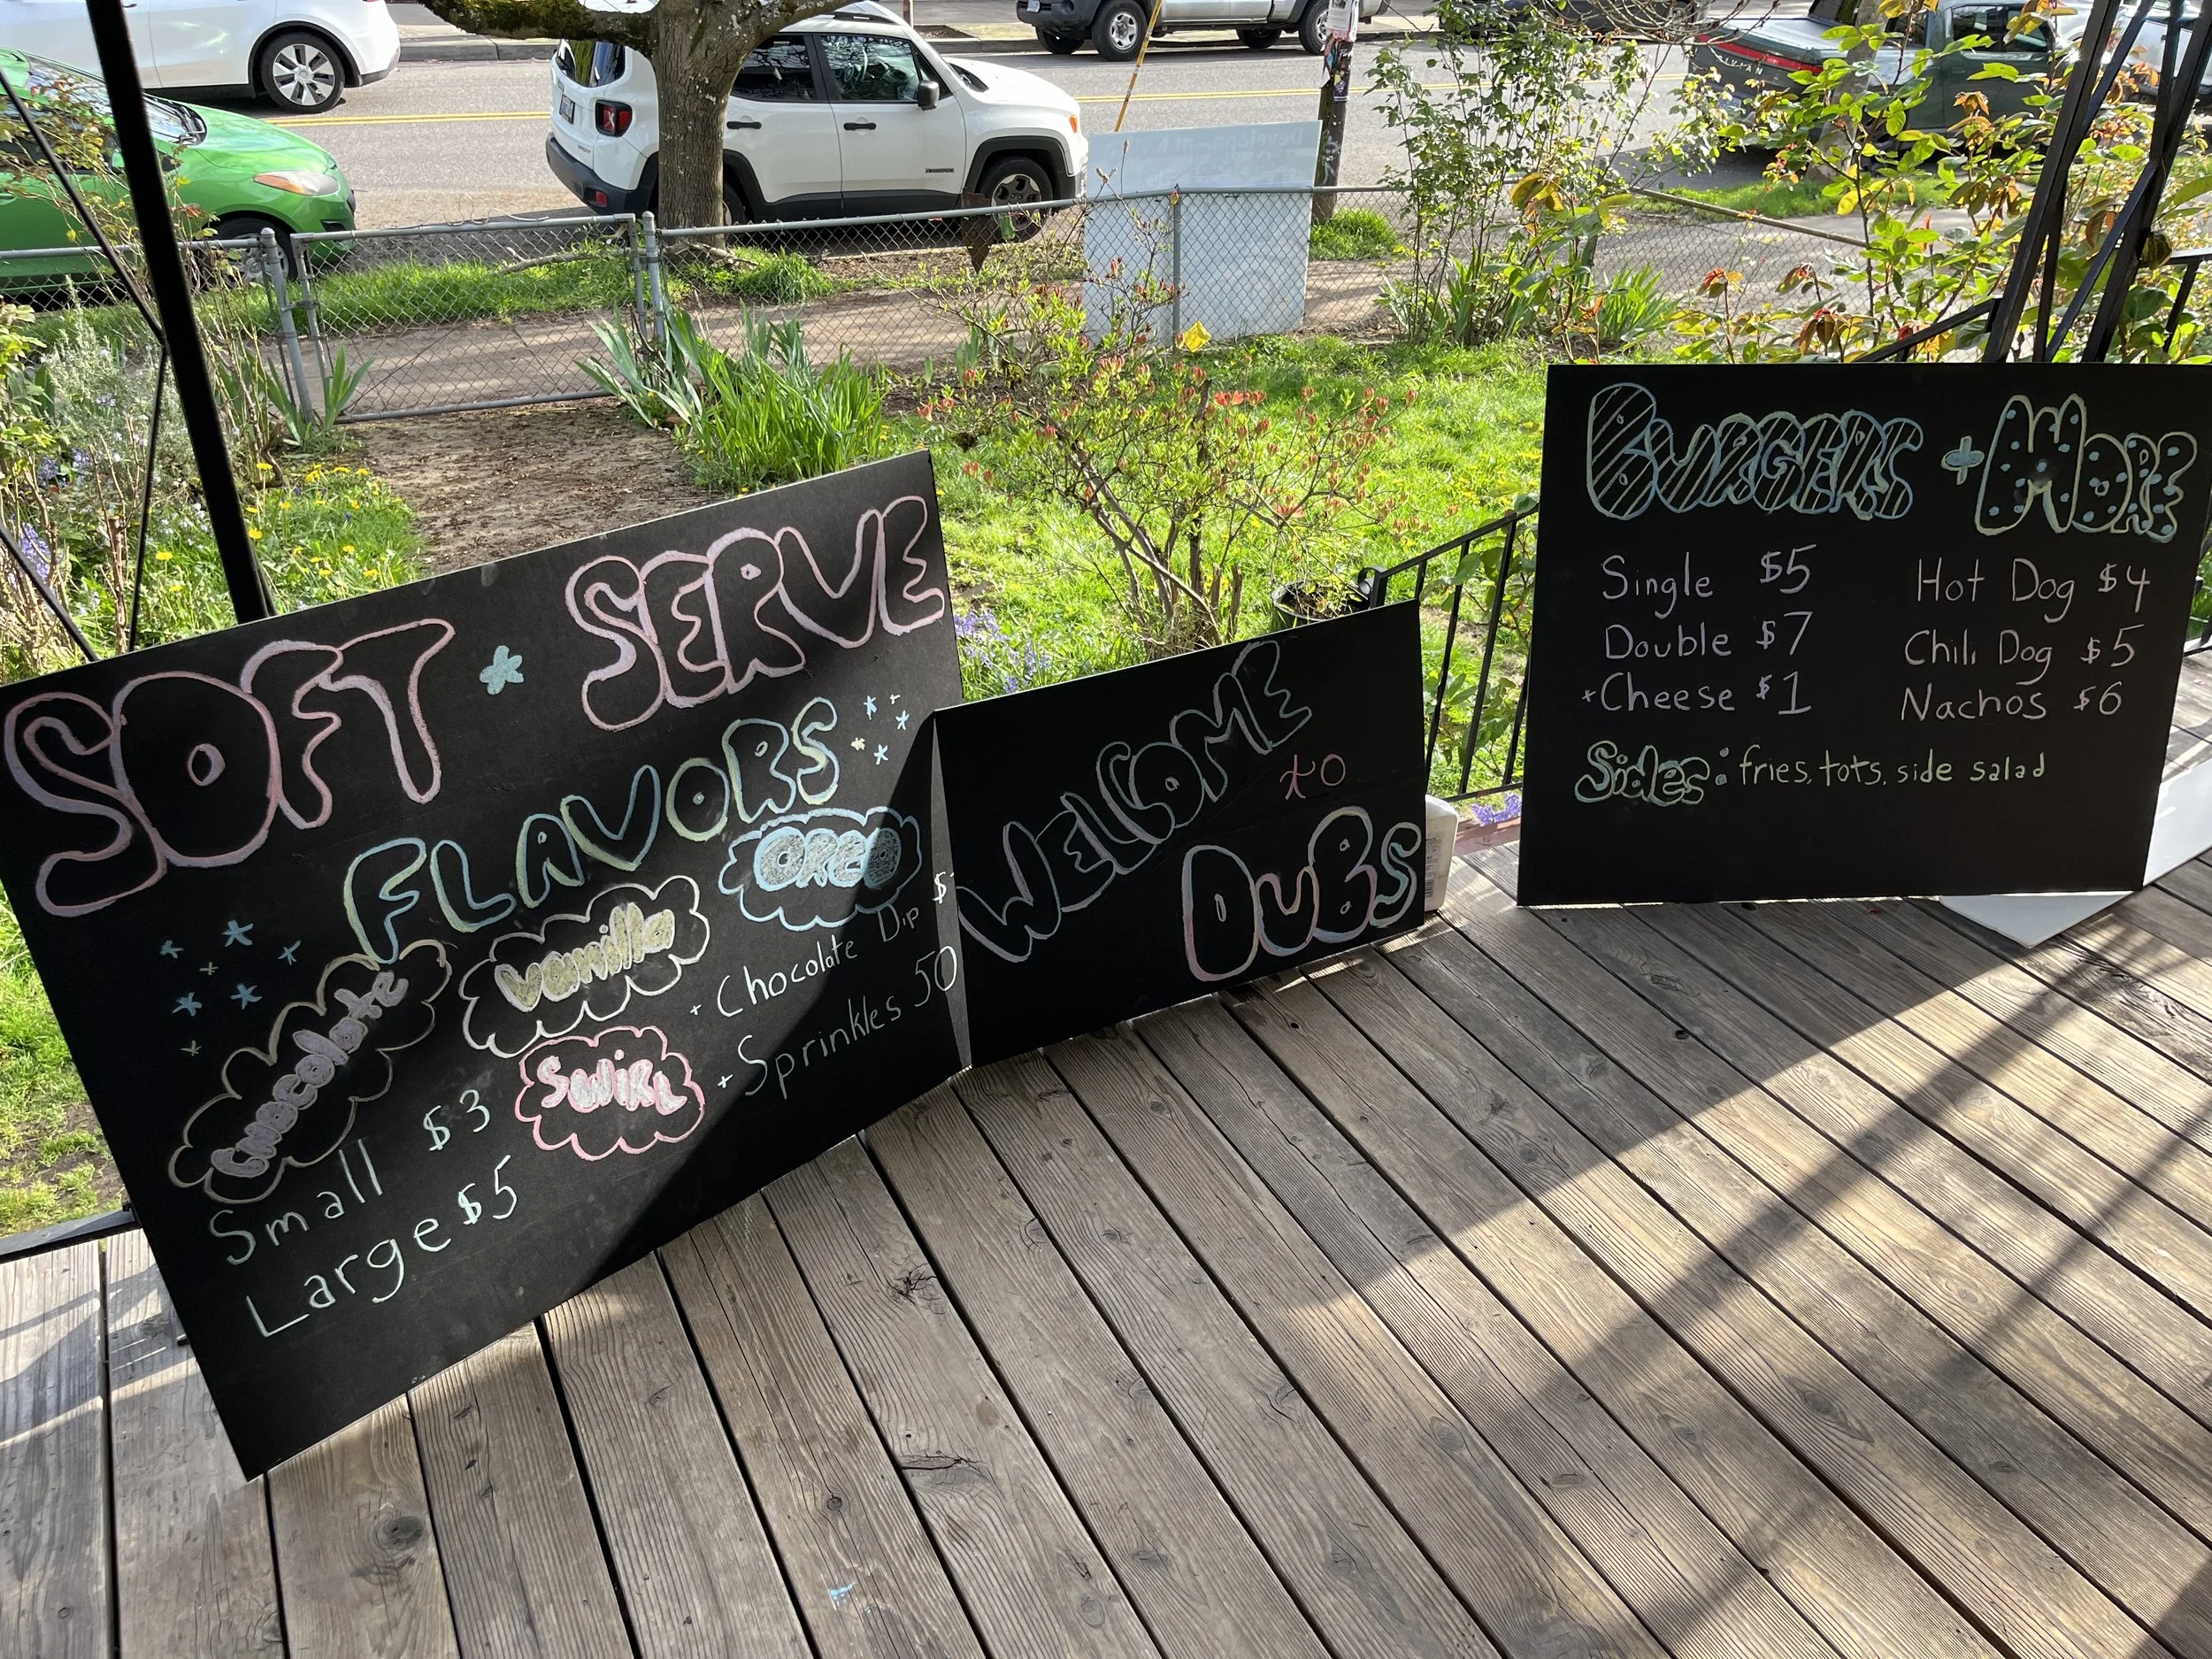 SOFT * SERVE
FLAVORS
chocolate
vanilla
OREO
SWIRL
+ Chocolate Dip $
+ Sprinkles 50
Small $3
Large $5
WELCOME
to
DUBS
BURGERS + MORE
Single $5
Double $7
+Cheese $1
Hot Dog $4
Chili Dog $5
Nachos $6
Sides: fries, tots, side salad
RIVIAN